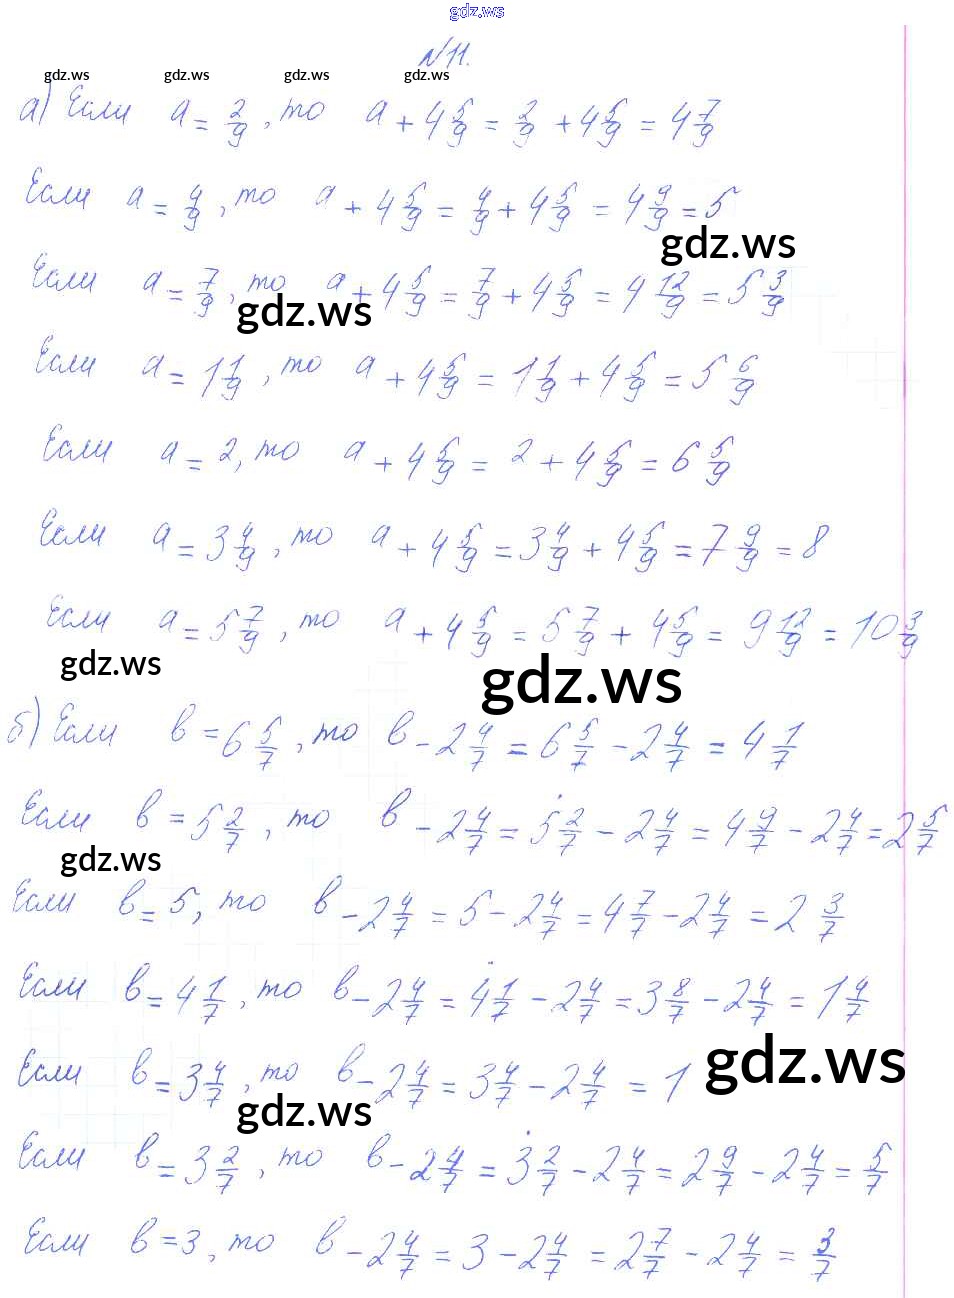 gdz.ws
N 11.
gdz.ws gdz.ws gdz.ws gdz.ws
а) Если a = 2/9, то a + 4 5/9 = 2/9 + 4 5/9 = 4 7/9
Если a = 4/9, то a + 4 5/9 = 4/9 + 4 5/9 = 4 9/9 = 5
gdz.ws
Если a = 7/9, то a + 4 5/9 = 7/9 + 4 5/9 = 4 12/9 = 5 3/9
gdz.ws
Если a = 1 1/9, то a + 4 5/9 = 1 1/9 + 4 5/9 = 5 6/9
Если a = 2, то a + 4 5/9 = 2 + 4 5/9 = 6 5/9
Если a = 3 4/9, то a + 4 5/9 = 3 4/9 + 4 5/9 = 7 9/9 = 8
Если a = 5 7/9, то a + 4 5/9 = 5 7/9 + 4 5/9 = 9 12/9 = 10 3/9
gdz.ws gdz.ws
б) Если в = 6 5/7, то в - 2 4/7 = 6 5/7 - 2 4/7 = 4 1/7
Если в = 5 2/7, то в - 2 4/7 = 5 2/7 - 2 4/7 = 4 9/7 - 2 4/7 = 2 5/7
gdz.ws
Если в = 5, то в - 2 4/7 = 5 - 2 4/7 = 4 7/7 - 2 4/7 = 2 3/7
Если в = 4 1/7, то в - 2 4/7 = 4 1/7 - 2 4/7 = 3 8/7 - 2 4/7 = 1 4/7
Если в = 3 4/7, то в - 2 4/7 = 3 4/7 - 2 4/7 = 1
gdz.ws
gdz.ws
Если в = 3 2/7, то в - 2 4/7 = 3 2/7 - 2 4/7 = 2 9/7 - 2 4/7 = 5/7
Если в = 3, то в - 2 4/7 = 3 - 2 4/7 = 2 7/7 - 2 4/7 = 3/7